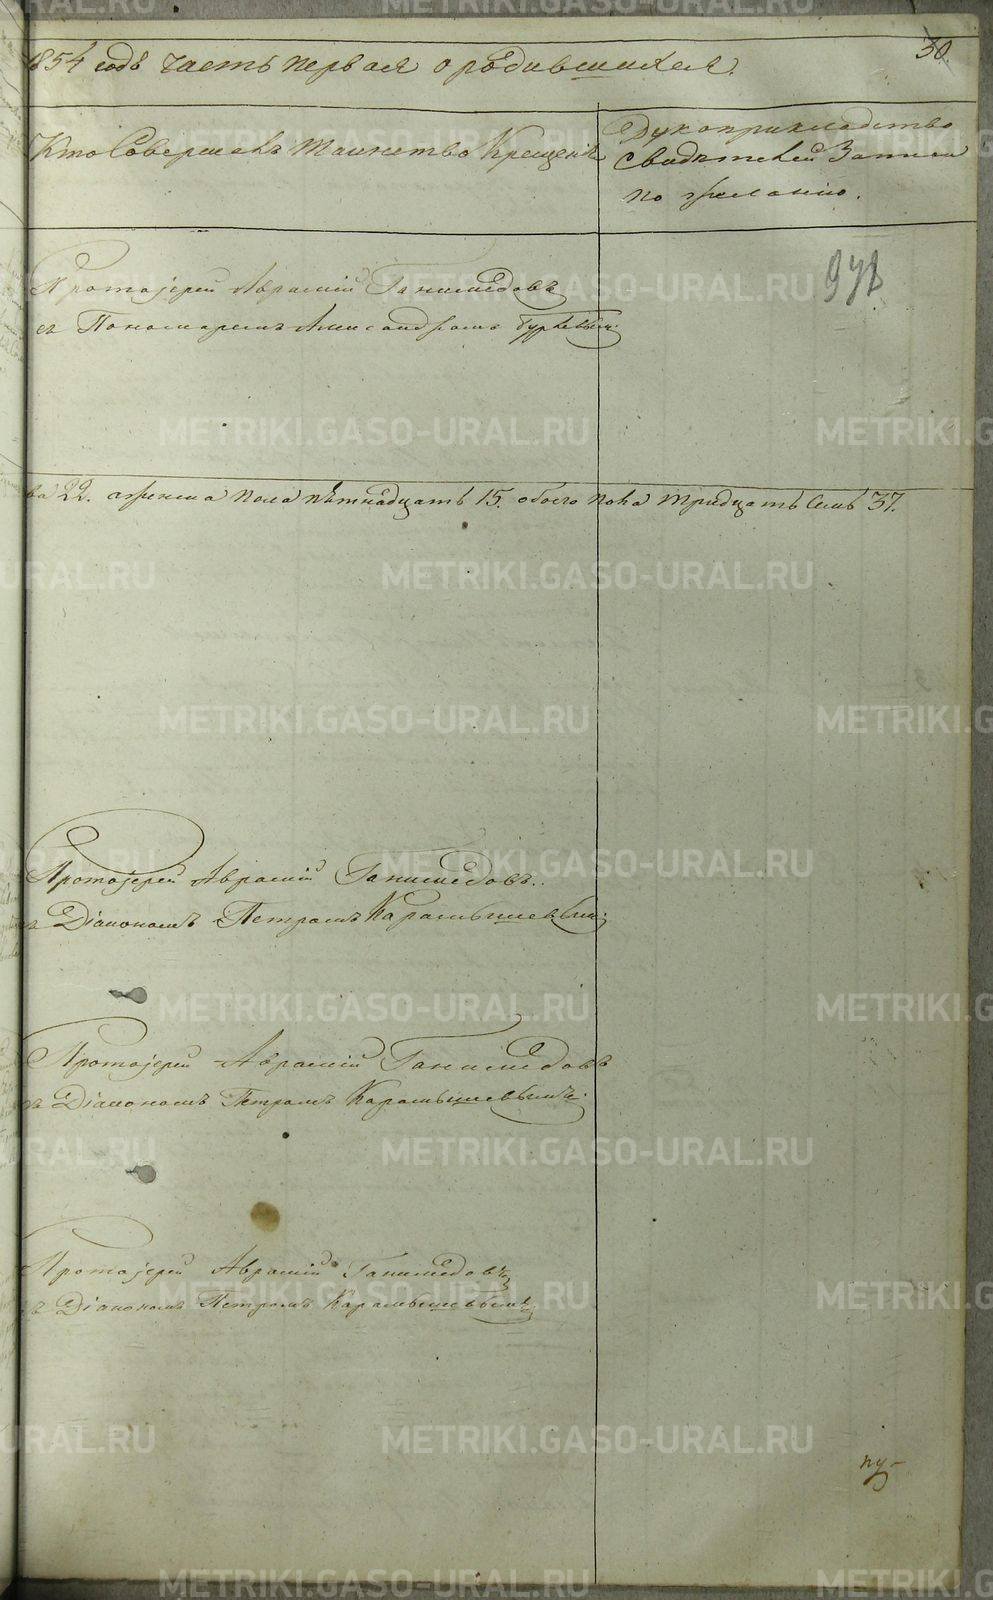 1854 годъ часть первая о родившихся.
30.
Кто Совершалъ Таинство Крещенія
Рукоприкладство
свидѣтелей Записи
по желанію.
Протоіерей Аврамій Ганимедовъ
съ Пономаремъ Александромъ
ва 22. а женска пола пѣтнадцать 15. обоего пола тридцать семь 37.
Протоіерей Аврамій Ганимедовъ.
съ Діакономъ Петромъ Карамышевымъ.
Протоіерей Аврамій Ганимедовъ
съ Діакономъ Петромъ Карамышевымъ.
Протоіерей Аврамій Ганимедовъ
съ Діакономъ Петромъ Карамышевымъ.
METRIKI.GASO-URAL.RU